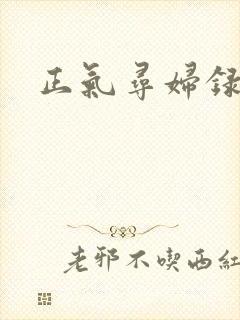 正氣尋婦録
老邪不喫西紅